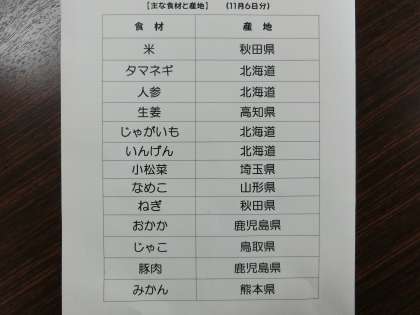 【主な食材と産地】 (11月6日分)
食 材 産 地
米 秋田県
タマネギ 北海道
人参 北海道
生姜 高知県
じゃがいも 北海道
いんげん 北海道
小松菜 埼玉県
なめこ 山形県
ねぎ 秋田県
おかか 鹿児島県
じゃこ 鳥取県
豚肉 鹿児島県
みかん 熊本県